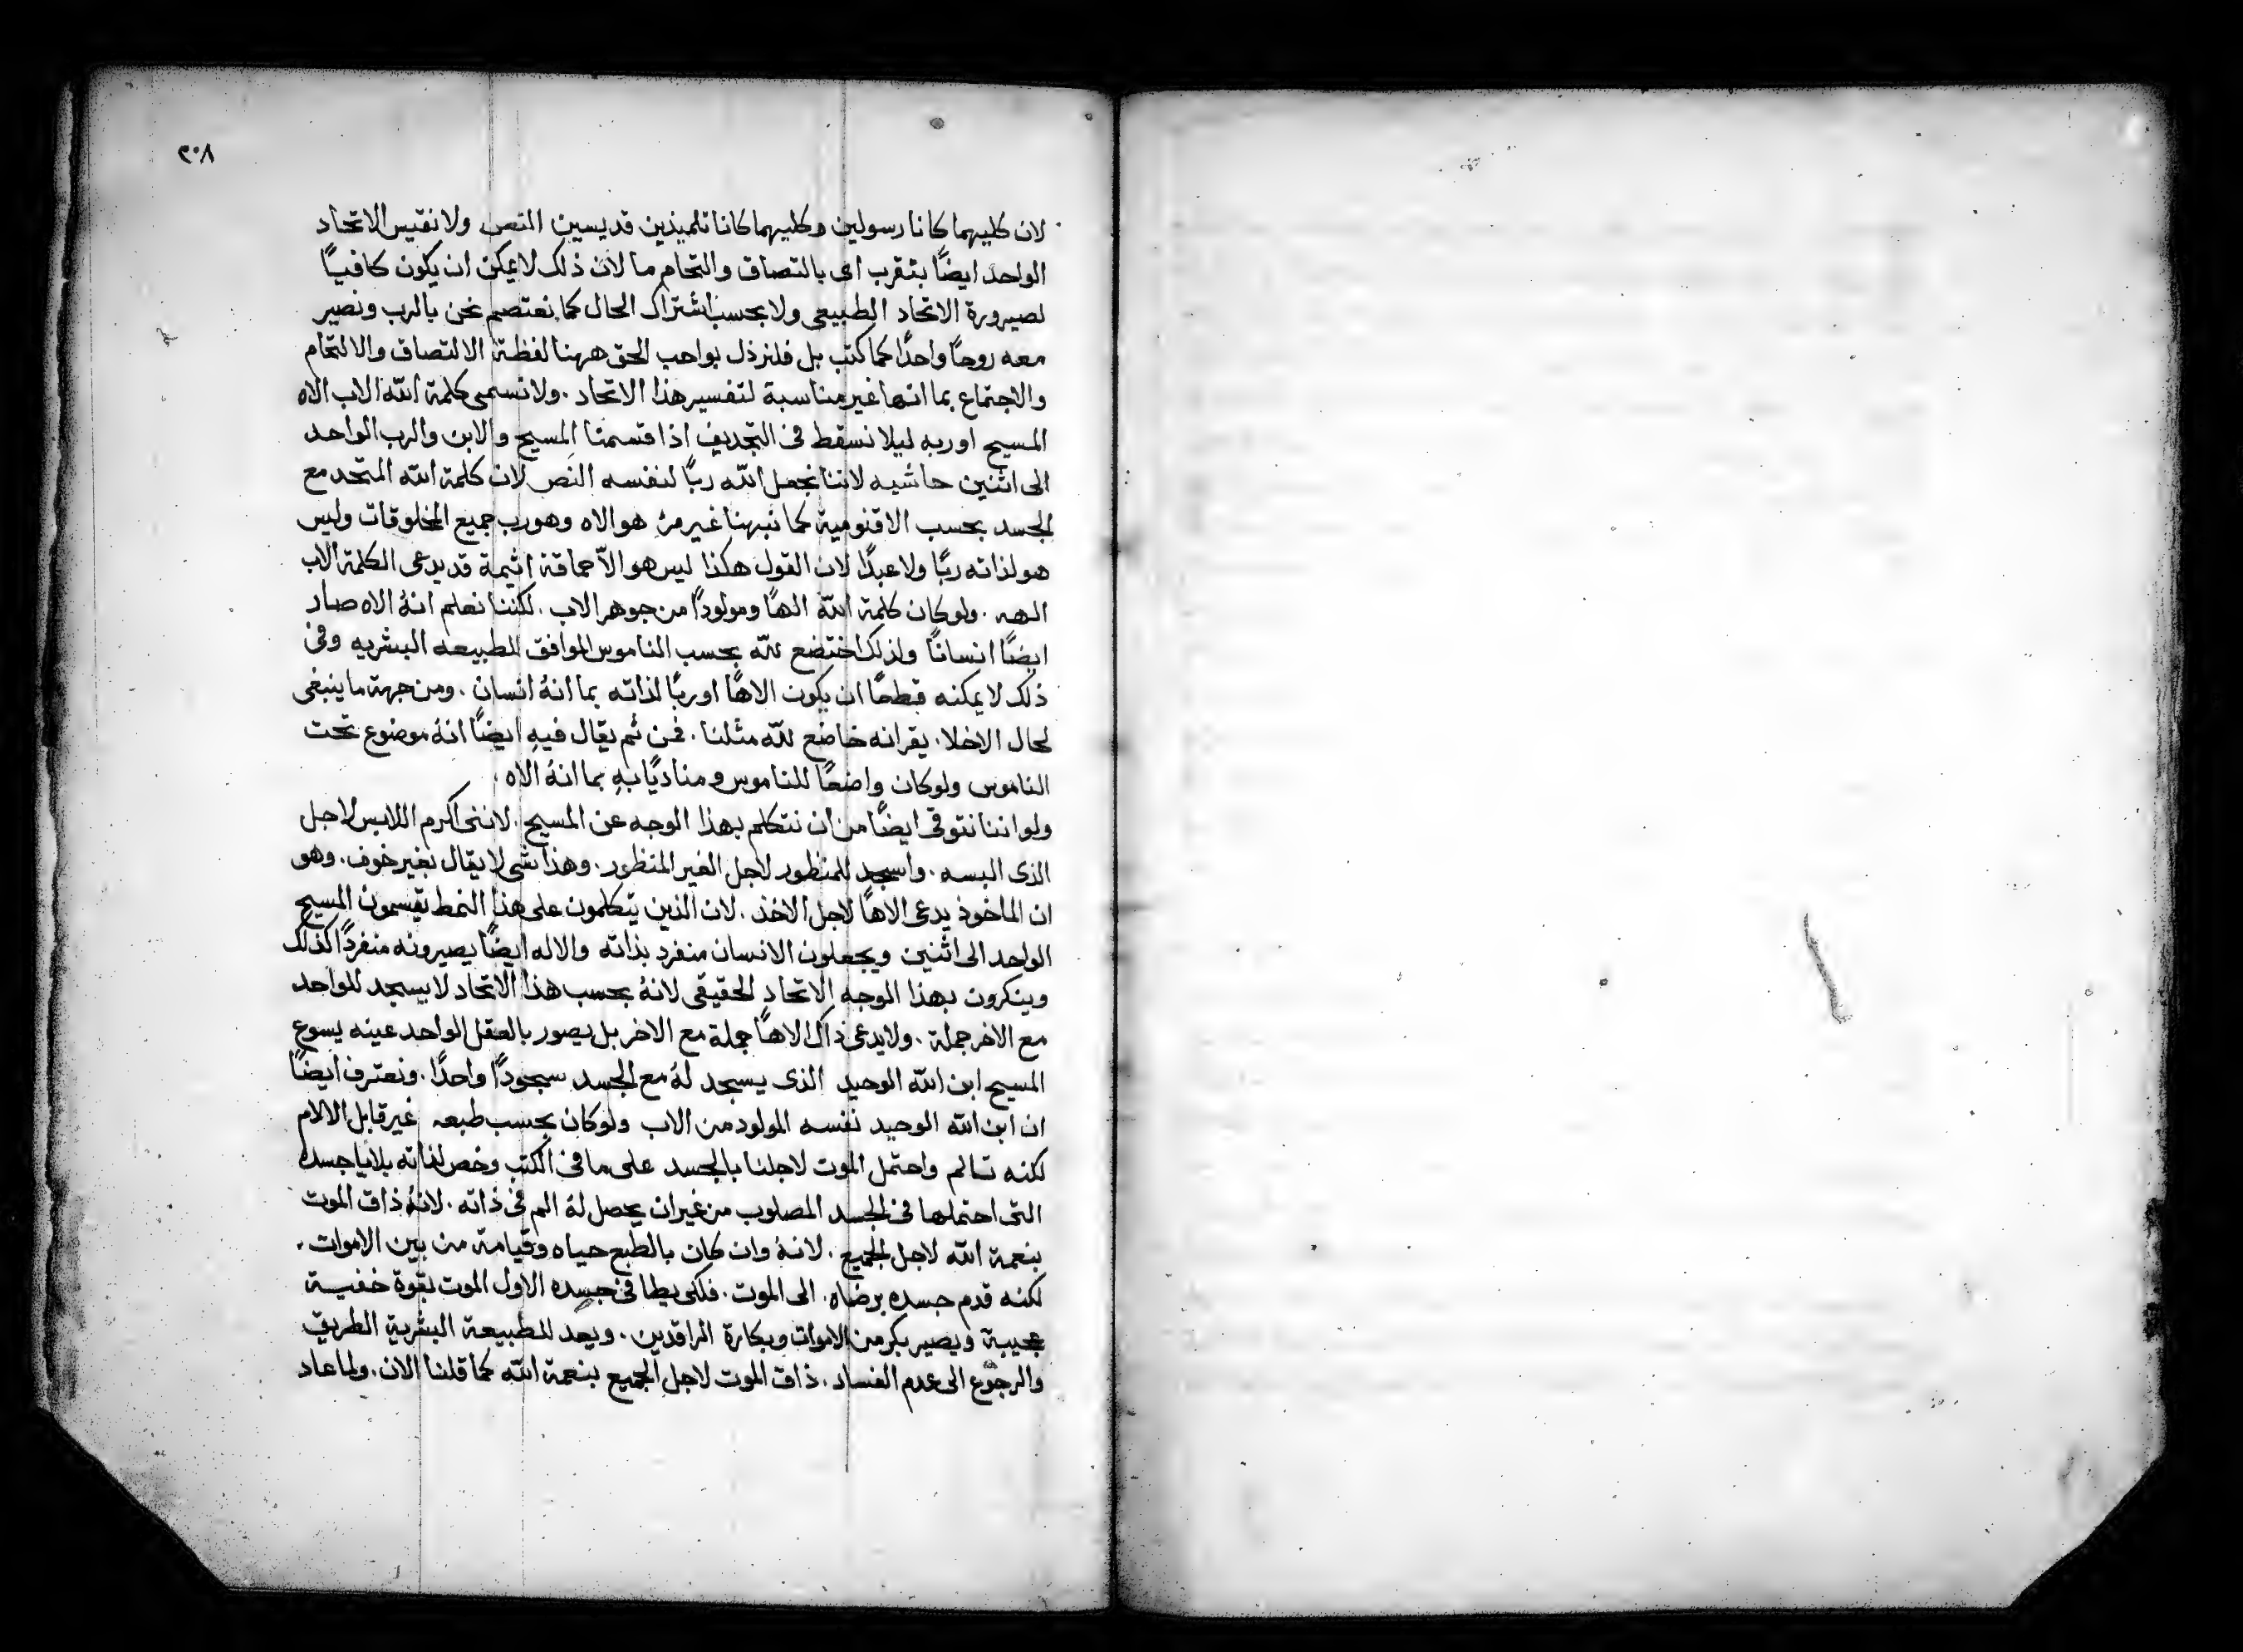 ٣٠٨
لان كليهما كانا رسولين وكليهما كانا تلميذين قديسين النص ولا نقيس الاتحاد
الواحد ايضًا بتقرب اى بالتصاق والتحام ما لان ذلك لا يمكن ان يكون كافيًا
لصيرورة الاتحاد الطبيعى ولا بحسب اشتراك الحال كما نعتصم نحن بالرب ونصير
معه روحًا واحدًا كما كتب بل فلنرذل بواجب الحق ههنا لفظة الالتصاق والالتحام
والاجتماع بما انها غير مناسبة لتفسير هذا الاتحاد . ولا نسمى كلمة الله الاب الاه
المسيح او ربه ليلا نسقط فى التجديف اذا قسمنا المسيح والابن والرب الواحد
الى اثنين حاشيه لاننا نجعل الله ربًا لنفسه النص لان كلمة الله المتحد مع
الجسد بحسب الاقنومية كما نبهنا غير مرة هو الاه وهو رب جميع المخلوقات وليس
هو لذاته ربًا ولا عبدًا لان القول هكذا ليس هو الّا حماقة اثيمة قد يدعى الكلمة الاب
الهه . ولو كان كلمة الله الهًا ومولودًا من جوهر الاب . لكننا نعلم انهُ الاه صار
ايضًا انسانًا ولذلك اختضع لله بحسب الناموس الموافق للطبيعه البشريه وفى
ذلك لا يمكنه قطعًا ان يكون الاهًا او ربًا لذاته بما انهُ انسان . ومن جهة ما ينبغى
لحال الاخلا . يقر انه خاضع لله مثلنا . فمن ثم يقال فيهِ ايضًا انهُ موضوع تحت
الناموس ولو كان واضعًا للناموس ومناديًا بهِ بما انهُ الاه .
ولو اننا نتوقى ايضًا من ان نتكلم بهذا الوجه عن المسيح . لاننى اكرم اللابس لاجل
الذى البسه . واسجد للمنظور لاجل الغير المنظور . وهذا شى لا يقال بغير خوف . وهو
ان الماخوذ يدعى الاهًا لاجل الاخذ . لان الذين يتكلمون على هذا النمط يقسمون المسيح
الواحد الى اثنين ويجعلون الانسان منفرد بذاته والاله ايضًا يصيرونه منفردًا كذلك
وينكرون بهذا الوجه الاتحاد الحقيقى لانهُ بحسب هذا الاتحاد لا يسجد للواحد
مع الاخر جملة . ولا يدعى ذاك الاهًا جملة مع الاخر بل يصور بالعقل الواحد عينه يسوع
المسيح ابن الله الوحيد الذى يسجد لهُ مع الجسد سجودًا واحدًا . ونعترف ايضًا
ان ابن الله الوحيد نفسه المولود من الاب ولو كان بحسب طبعه غير قابل الالام
لكنه تالم واحتمل الموت لاجلنا بالجسد على ما فى الكتب وخص لذاته بلايا جسده
التى احتملها فى الجسد المصلوب من غير ان يحصل لهُ الم فى ذاته . لانهُ ذاق الموت
بنعمة الله لاجل الجميع . لانهُ وان كان بالطبع حياه وقيامة من بين الاموات .
لكنه قدم جسده برضاه . الى الموت . فلكى يطا فى جسده الاول الموت بقوة خفية
عجيبة ويصير بكر من الاموات وبكارة الراقدين . ويعد للطبيعة البشرية الطريق
والرجوع الى عدم الفساد . ذاق الموت لاجل الجميع بنعمة الله كما قلنا الان . ولما عاد